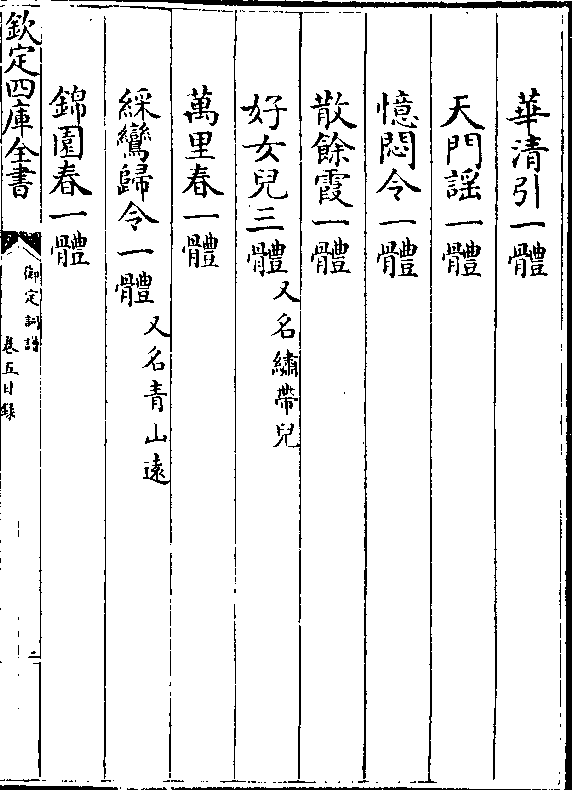 華清引一體
天門謡一體
憶悶令一體
散餘霞一體
好女兒三體又名繡帶兒
萬里春一體
綵鸞歸令一體又名青山遠
錦園春一體
欽定四庫全書
御定詞譜
卷五目錄
二